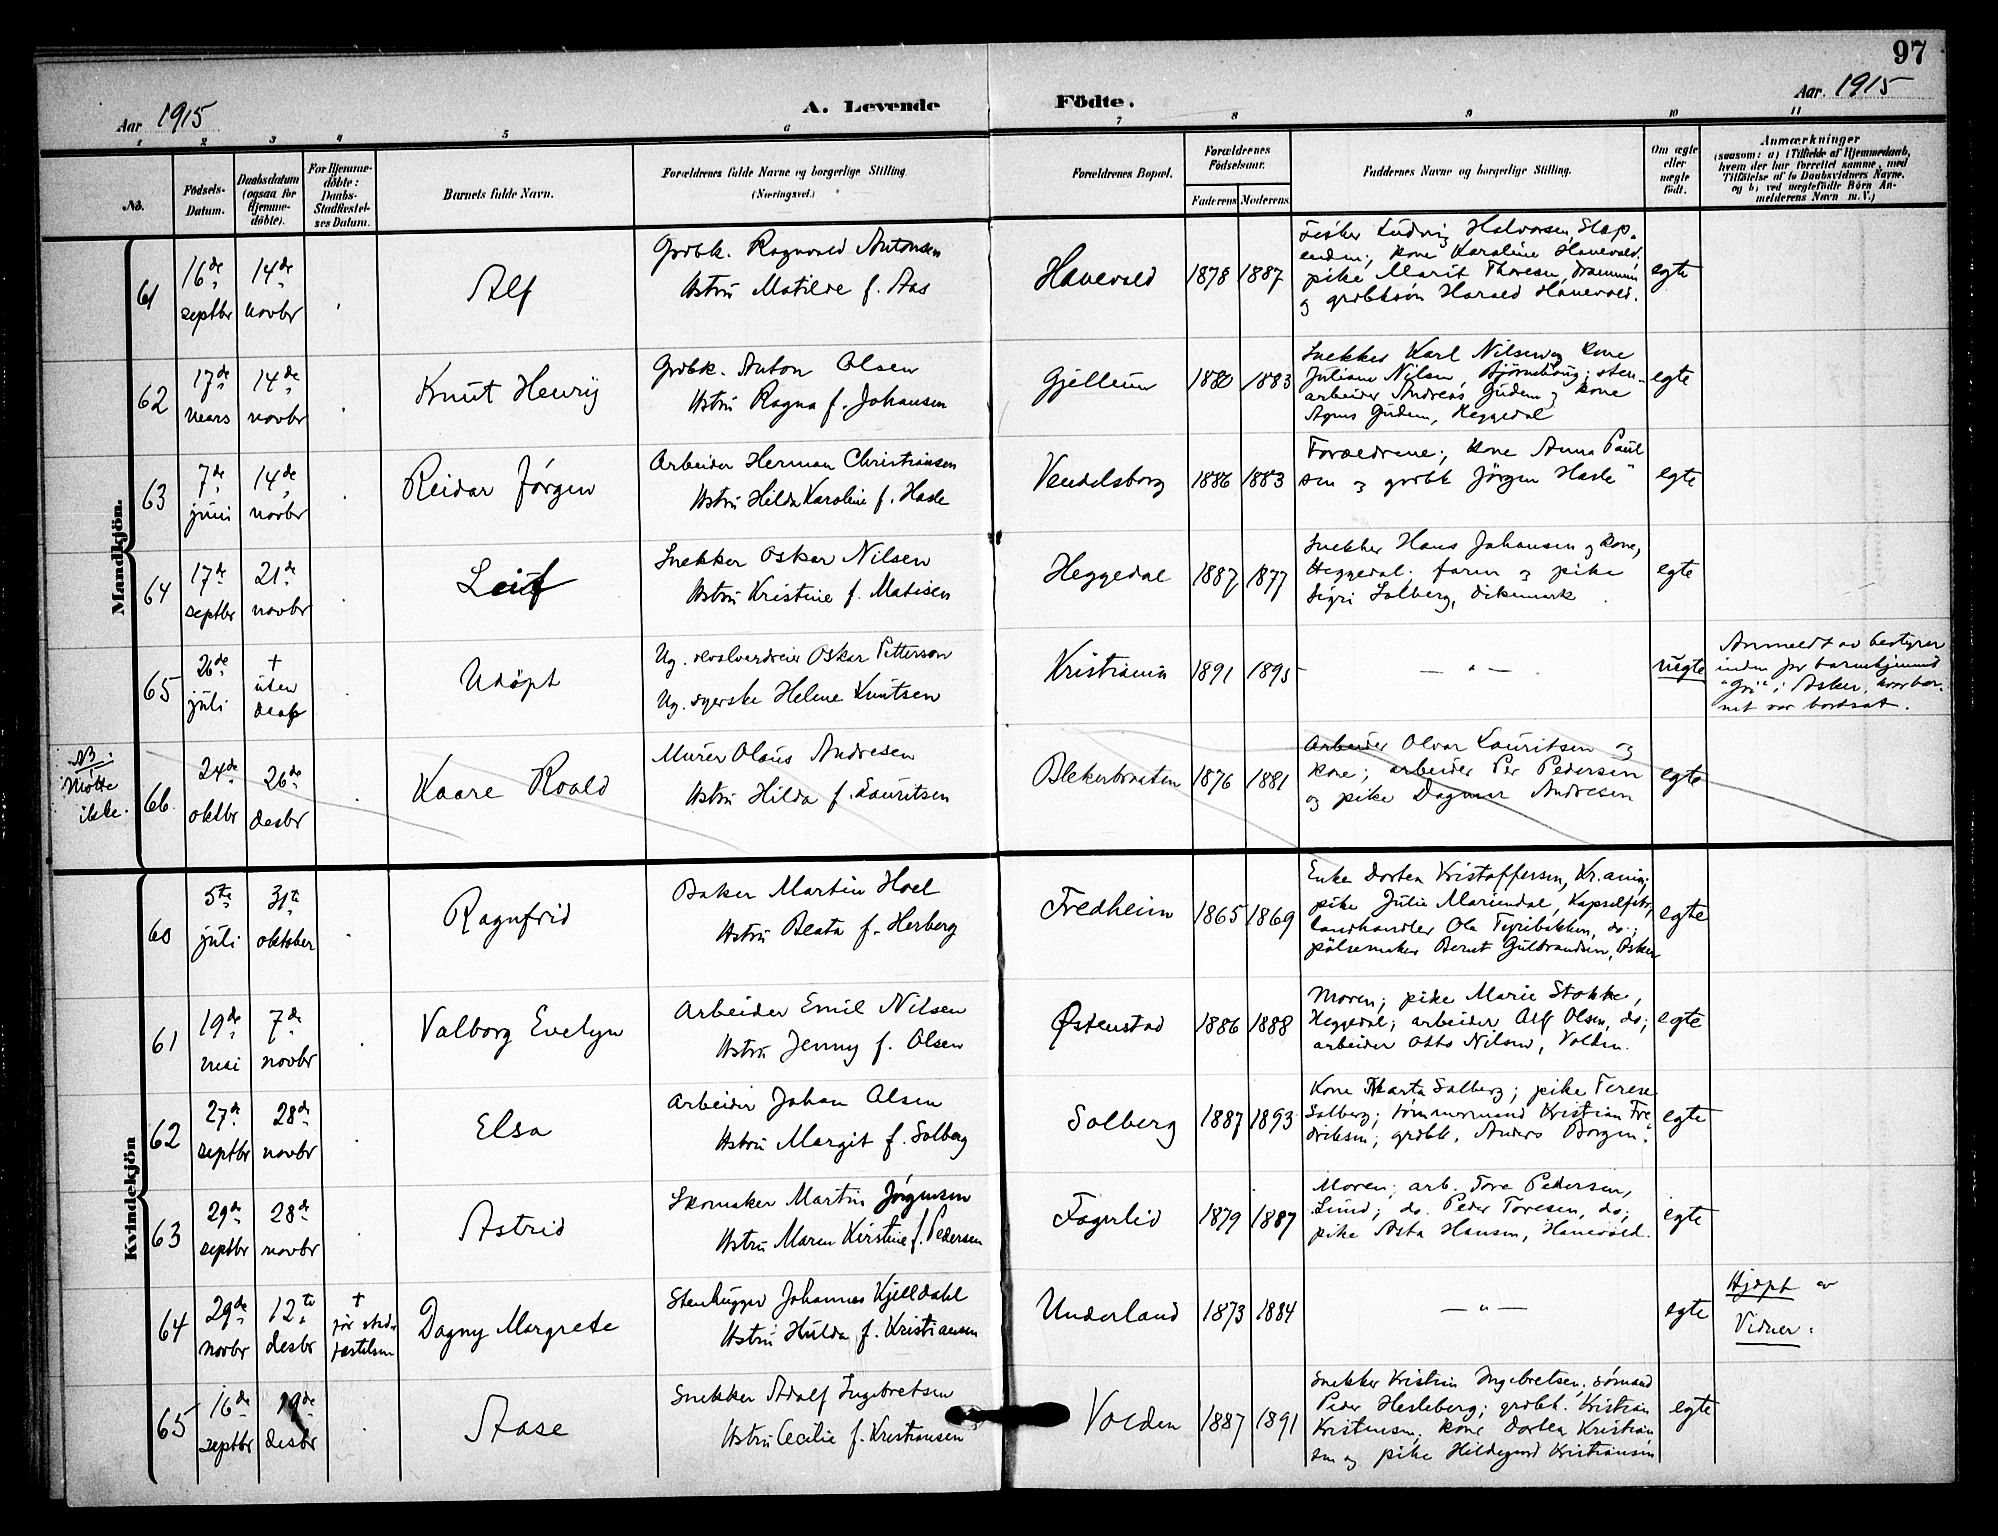 97
Aar 1915
A. Levende Födte.
Aar 1915
1 2 3 4 5 6 7 8 9 10 11
No.
Födsels-Datum.
Daabsdatum (ogsaa for Hjemmedöbte).
For Hjemmedöbte: Daabs-Stadfæstelses Datum.
Barnets fulde Navn.
Forældrenes fulde Navne og borgerlige Stilling (Næringsvei.)
Forældrenes Bopæl.
Forældrenes Födselsaar.
Faderens Moderens
Faddernes Navne og borgerlige Stilling.
Om ægte eller uægte födt.
Anmærkninger
(saasom: a) i Tilfælde af Hjemmedaab, hvem der har forrettet samme, med Tilföielse af to Daabsvidners Navne. og b) ved uægtefödte Börn Anmelderens Navn m. V.)
Mandkjön.
61
16de septbr
14de novbr
Alf
Grdbk. Ragnvald Antonsen
Hstrú Matilde f. Aas
Hanevold
1878 1887
Ludvig Halvorsen, Slependen; kone Karoline Hanevold;
pike Marit Thoresen, Drammen,
og grdbksøn Harald Hanevold.
egte
62
17de mars
14de novbr
Knut Henrij
Grdbk. Anton Olsen
Hstrú Ragna f. Johansen
Gjellum
1880 1883
Snekker Karl Nilsen og kone
Juliane Nilsen, Bjørnehaug; sten-
arbeider Andreas Gudem og kone
Agnes Gudem, Heggedal
egte
63
7de júni
14de novbr
Reidar Jørgen
Arbeider Herman Christiansen
Hstrú Hilda Karoline f. Hasle
Vendelsborg
1886 1883
Foreldrene; kone Anna Paul
sen og grdbk Jörgen Hasle
egte
64
17de septbr
21de novbr
Leif
Snekker Oskar Nilsen
Hstrú Kristine f. Matisen
Heggedal
1887 1877
Snekker Hans Johansen og kone,
Heggedal; faren og pike
Sigri Solberg, Dikemark.
egte
65
26de júli
† uten daap
Udöpt
Ug. revolverdreier Oskar Petterson
Ug. syerske Helene Knutsen
Kristiania
1891 1895
— " —
uegte
Anmeldt av bestyrer
inden for barnehjemmet
i Asker, hvor bar-
net var bortsat.
NB. Møtte ikke.
66.
24de oktbr
26de desbr
Kaare Roald
Murer Olaus Andresen
Hstrú Hilda f. Lauritsen
Blekerbraaten
1876 1881
Arbeider Olvar Lauritsen og
kone; arbeider Per Pedersen
og pike Dagmar Andresen
egte
Kvindekjön
60
5te júli
31te oktober
Ragnfrid
Baker Martin Hoel
Hstrú Beata f. Herberg
Fredheim
1865 1869
Enke Dortea Kristoffersen, Kr.ania;
pike Júlie Mariendal, Kapselfabr;
landhandler Ola Tyribakken, do.;
pölsemaker Bernt Gulbrandsen, Asker
egte
61
19de mai
7de novbr
Valborg Evelyn
Arbeider Emil Nilsen
Hstrú Jenny f. Olsen
Østenstad
1886 1888
Moren; pike Marie Stokke,
Heggedal; arbeider Alf Olsen, do;
arbeider Otto Nilsen, Volden.
egte
62
27de septbr
28de novbr
Elsa
Arbeider Johan Olsen
Hstrú Margit f. Solberg
Solberg
1887 1893
Kone Marta Solberg; pike Terese
Solberg; tömmermand Kristian Fre
driksen; grdbk. Anders Borgen.
egte
63
29de septbr
28de novbr
Astrid
Skomaker Martin Jørgensen
Hstrú Maren Kirstine f. Pedersen
Fagerlid
1879 1887
Moren; arb. Tore Pedersen,
Lund; do. Peder Toresen, do;
pike Asta Hansen, Hanevold.
egte
64
29de novbr
12te desbr
† før stadfæstelsen
Dagny Margrete
Stenhugger Johannes Kjelldahl
Hstrú Hulda f. Kristiansen
Underland
1873 1884
— " —
egte
Hjdöpt av
Vidner:
65
16de septbr
19de desbr
Aase
Snekker Adolf Ingebretsen
Hstrú Cecilie f. Kristiansen
Volden
1887 1891
Snekker Kristian Ingebretsen; sømand
Peder Hesleberg; grdbk. Kristian
Kristensen; kone Dortea Kristian
sen og pike Hildegard Kristiansen
egte